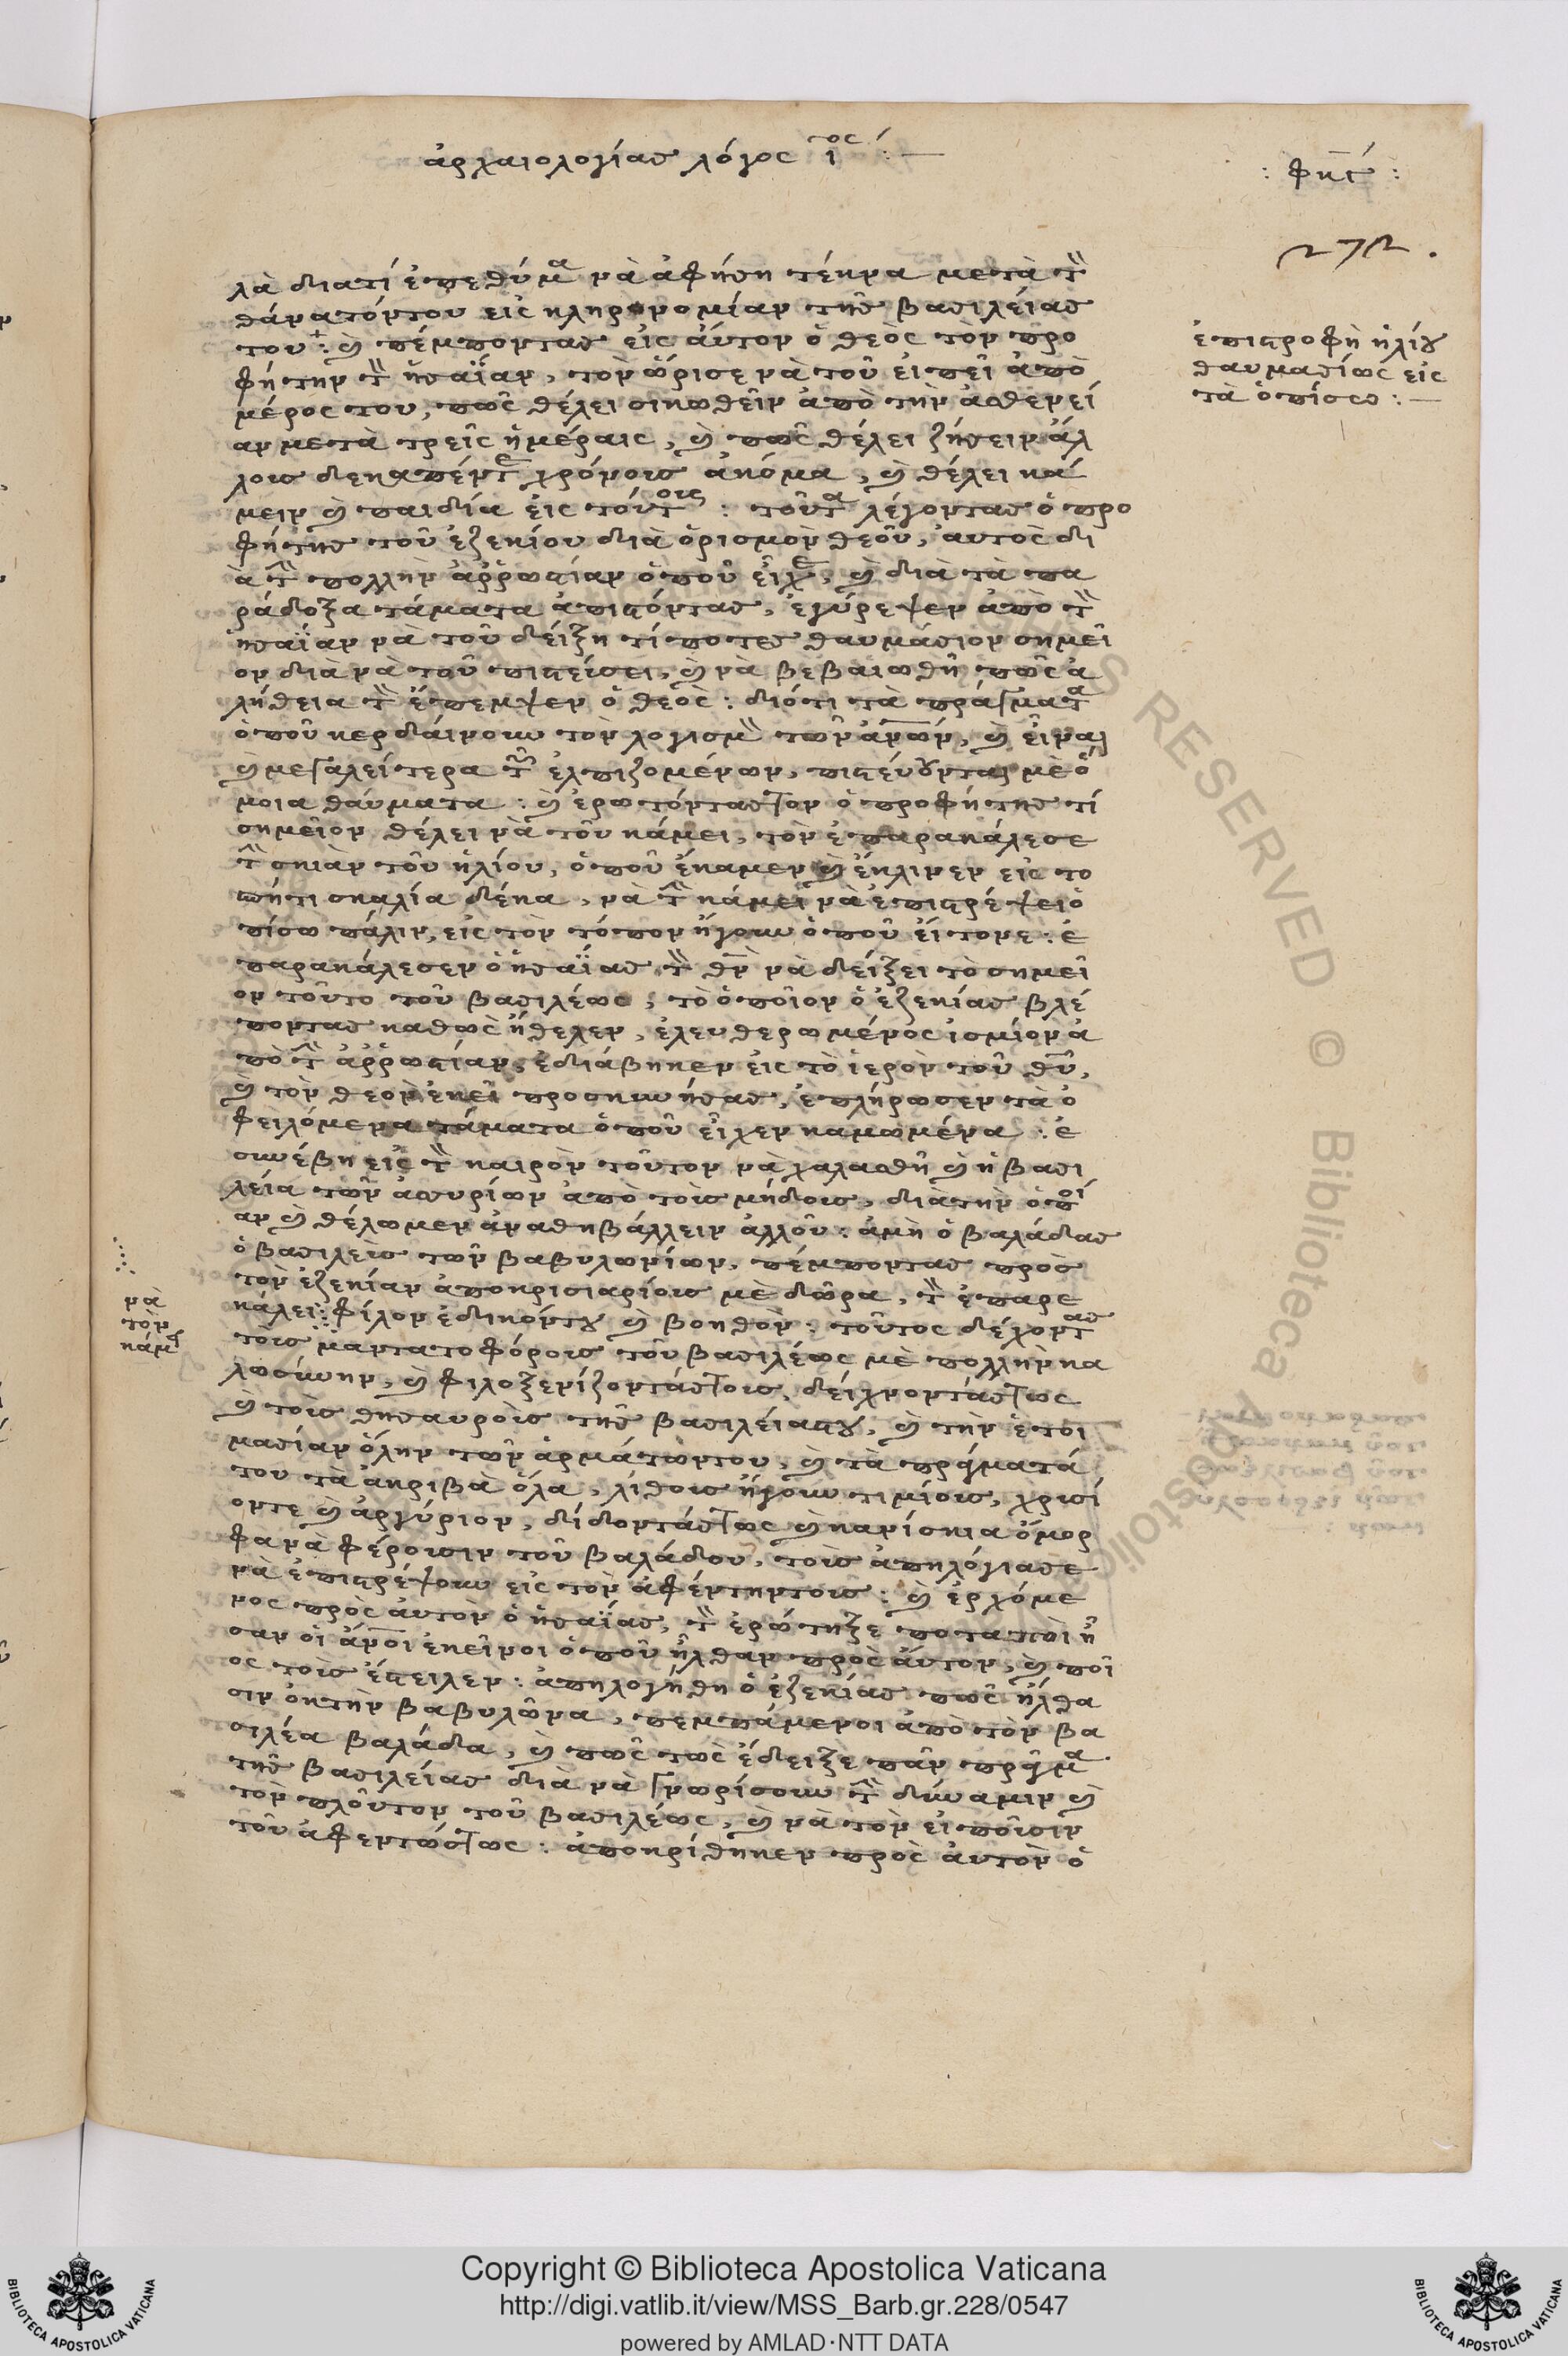 ἀρχαιολογίας λόγος ι^ος :—
: φης :
272.
λὰ διατί ἐπεθύμα νὰ ἀφήση τέκνα μετὰ τὸν
θάνατόντου εἰς κληρονομίαν τῆς βασιλείας
του: καὶ πέμπορτας εἰς αὐτον ὁ θεὸς τὸν προ
φήτην τὸν ἡσαΐαν, τὸν ὥρισε νὰ τοῦ εἰπεῖ ἀπὸ
μέρος του, πῶς θέλει σικωθεῖν ἀπὸ τὴν ἀσθενεί
αν μετὰ τρεῖς ἡμέραις, καὶ πῶς θέλει ζήσειν ἄλ
λους δεκαπέντε χρόνους ἀκόμα, καὶ θέλει κά
μειν καὶ παιδία εἰς τούτοις : τοῦτα λέγοντας ὁ προ
φήτης τοῦ ἐζεκίου διὰ ὁρισμὸν θεοῦ, αυτὸς δι
ὰ τὴν πολλὴν ἀῤῥωστίαν ὁποῦ εἶχε, καὶ διὰ τὰ πα
ράδοξα τάματα ἀπιστόντας, ἐγύρεψεν ἀπὸ τὸν
ἡσαΐαν νὰ τοῦ δείξη τί ποτες θαυμάσιον σημεῖ
ον διὰ νὰ τοῦ πιστεύσει, καὶ νὰ βεβαιωθῆ πῶς ἀ
λήθεια τὸν ἔπεμψεν ὁ θεὸς : διότι τὰ πράγματα
ὁποῦ κερδαίνουν τὸν λογισμὸν τῶν ἀνων, καὶ εἶναι
καὶ μεγαλείτερα τῶν ἐλπιζομένων, πιστεύουνται μὲ ὅ
μοια θαύματα : καὶ ἐρωτόντας τον ὁ προφήτης τί
σημεῖον θέλει νὰ τοῦ κάμει, τὸν ἐπαρακάλεσε
τὴν σκιὰν τοῦ ἡλίου, ὁποῦ ἔκαμεν καὶ ἔκλινεν εἰς το
σπήτι σκαλία δέκα, νὰ τὴν κάμει νὰ ἐπιστρέψει ὀ
πίσω πάλιν, εἰς τὸν τόπον ἤγουν ὁποῦ εἴτονε : ἐ
παρακάλεσεν ὁ ἡσαΐας τὸν θν νὰ δείξει τὸ σημεῖ
ον τοῦτο τοῦ βασιλέως, τὸ ὁποῖον ὁ ἐζεκίας βλέ
ποντας καθὼς ἤθελεν, ἐλευθερωμένος ἰσμίον ἀ
πὸ τὴν ἀῤῥωστίαν, ἐδιάβηκεν εἰς τὸ ἱερὸν τοῦ θυ,
καὶ τὸν θεὸν ἐκεῖ προσκυνήσας, ἐπλήρωσεν τὰ ὀ
φειλόμενα τάματα ὁποῦ εἶχεν καμωμένα : ἐ
συνέβη εἰς τὸν καιρὸν τοῦτον νὰ χαλασθῆ καὶ ἡ βασι
λεία τῶν ἀσυρίων ἀπὸ τοὺς μήδους, διὰ τὴν ὁποί
αν καὶ θέλωμεν ἀναθηβάλλειν ἀλλοῦ : ἀμὴ ὁ βαλάδας
ὁ βασιλεὺς τῶν βαβυλωνίων, πέμποντας πρὸς
τὸν ἐζεκίαν ἀποκρισιαρίους μὲ δῶρα, τὸν ἐπαρε
κάλει : φίλον ἐδικόντου καὶ βοηθὸν : τοῦτος δέχοντας
τοὺς μαντατοφόρους τοῦ βασιλέως μὲ πολλὴν κα
λωσύνην, καὶ φιλοξενίζοντάς τους, δείχνοντάς τως
καὶ τοὺς θησαυροὺς τῆς βασιλείαςτου, καὶ τὴν ἑτοι
μασίαν ὅλην τῶν ἁρμάτωντου, καὶ τὰ πράγματά
του τὰ ἀκριβὰ ὅλα, λίθους ἤγουν τιμίους, χρυσί
οντε καὶ ἀργύριον, δίδοντάς τως καὶ κανίσκια ὄμορ
φα νὰ φέρουσιν τοῦ βαλάδου, τοὺς ἀπηλόγιασε
νὰ ἐπιστρέψουν εἰς τὸν ἀφέντηντους : καὶ ἐρχόμε
νος πρὸς αὐτὸν ὁ ἡσαΐας, τὸν ἐρώτηξε ποταποὶ ἦ
σαν οἱ ἄνοι ἐκεῖνοι ὁποῦ ἦλθαν πρὸς αὐτον, καὶ ποῖ
ος τοὺς ἔστειλεν : ἀπηλογήθη ὁ ἐζεκίας πῶς ἤλθα
σιν ὀκτὴν βαβυλῶνα, πεμπάμενοι ἀπὸ τὸν βα
σιλέα βαλάδα, καὶ πῶς τῶς ἔδειξε πᾶν πράγμα
τῆς βασιλείας διὰ νὰ γνωρίσουν τὴν δύναμιν καὶ
τὸν πλοῦτον τοῦ βασιλέως, καὶ νὰ τὸν εἰποῦσιν
τοῦ ἀφεντώς τως : ἀποκρίθηκεν πρὸς αὐτὸν ὁ
ἐπιστροφὴ ἡλίου
θαυμασίως εἰς
τὰ ὀπίσω :—
νὰ
τὸν
κάμῃ
ALL RIGHTS RESERVED © Biblioteca Apostolica
Copyright © Biblioteca Apostolica Vaticana
http://digi.vatlib.it/view/MSS_Barb.gr.228/0547
powered by AMLAD·NTT DATA
BIBLIOTECA APOSTOLICA VATICANA
BIBLIOTECA APOSTOLICA VATICANA